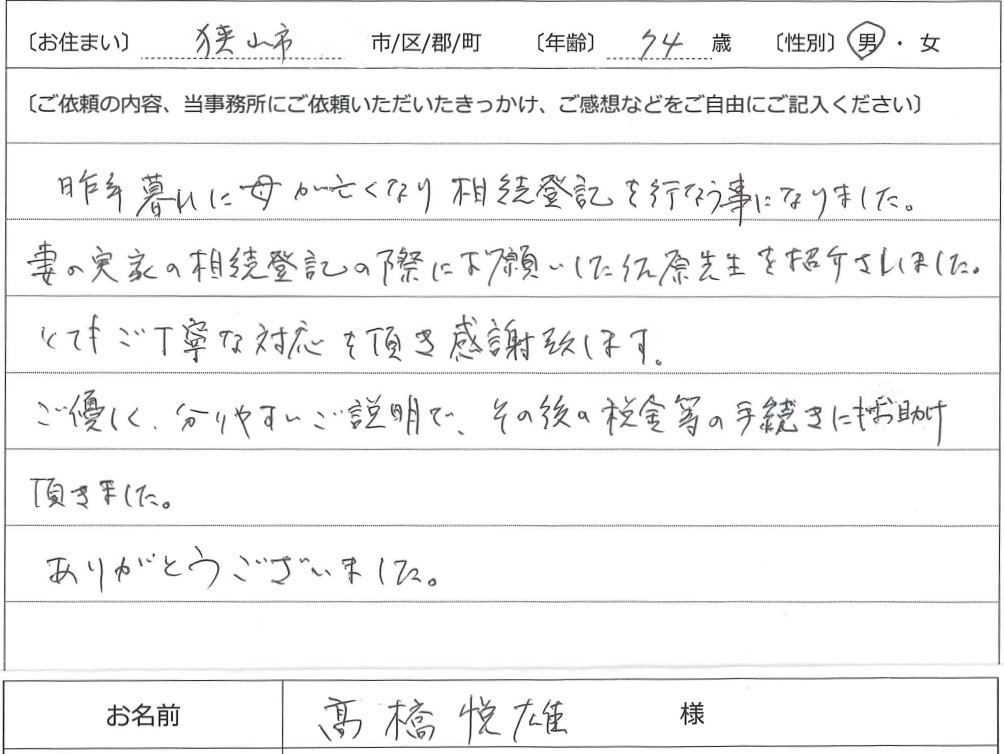 〔お住まい〕 狭山市 市/区/郡/町 〔年齢〕 74 歳 〔性別〕 男 ・ 女
〔ご依頼の内容、当事務所にご依頼いただいたきっかけ、ご感想などをご自由にご記入ください〕
昨年暮れに母が亡くなり相続登記を行なう事になりました。
妻の実家の相続登記の際にお願いした佐原先生を紹介されました。
とてもご丁寧な対応を頂き感謝致します。
ご優しく、分りやすいご説明で、その後の税金等の手続きにもお助け
頂きました。
ありがとうございました。
お名前 髙橋悦雄 様